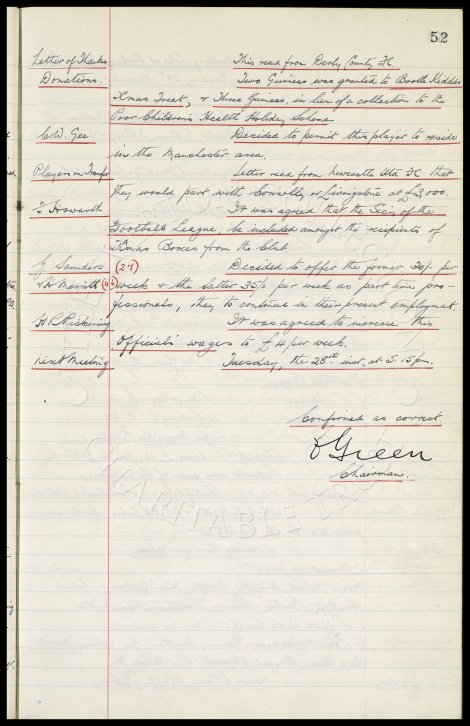 52
Letter of Thanks This read from Derby County FC.
Donations. Two Guineas was granted to Booth Kiddies
Xmas Treat, & Three Guineas, in lieu of a collection to the
Poor Children's Health Holiday Scheme.
C.W. Gee Decided to permit this player to reside
in the Manchester area.
Players on Transfer Letter read from Newcastle Utd FC that
they would part with Connolly or Livingstone at £3,000.
F. Howarth It was agreed that the Secy of the
Football League, be included amongst the recipients of
Xmas Boxes from the Club.
G. Saunders (27) Decided to offer the former 30/- per
& H Merritt (46) week & the latter 35/- per week as part time pro-
fessionals, they to continue in their present employment.
H R Pickering It was agreed to increase this
Officials wages to £4 per week.
Next Meeting Tuesday, the 28th inst. at 5.15 pm.
Confirmed as correct.
Green
Chairman.
CHARITABLE